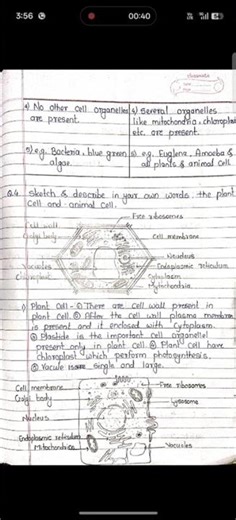 3:56
00:40
4) No other cell organelles are present.
4) Several organelles like mitochondria, chloroplast etc. are present.
5) e.g. Bacteria, blue green algae.
5) e.g. Euglena, Amoeba & all plants & animal cell.
Q.4. Sketch & describe in your own words, the plant cell and animal cell.
Free ribosomes
Cell wall
Golgi body
Cell membrane
Nucleus
Vacuoles
Endoplasmic reticulum
Chloroplast
Cytoplasm
Mitochondria
1) Plant Cell - ① There are cell wall present in
plant cell. ② After the cell wall plasma membran
is present and it enclosed with Cytoplasm.
③ Plastids is the important cell organellel
present only in plant cell. ④ Plant cell have
chloroplast which perform photosynthesis.
⑤ Vacule is single and large.
Cell membrane
Free ribosomes
Golgi body
Lysosome
Nucleus
Endoplasmic reticulum
Mitochondrion
Vacuoles